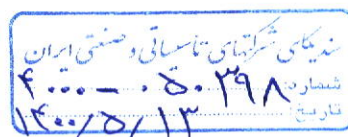 سندیکای شرکتهای تاسیساتی و صنعتی ایران
شماره: ۴۰۰۰-۰۵۰۳۹۸
تاریخ: ۱۴۰۰/۵/۱۳